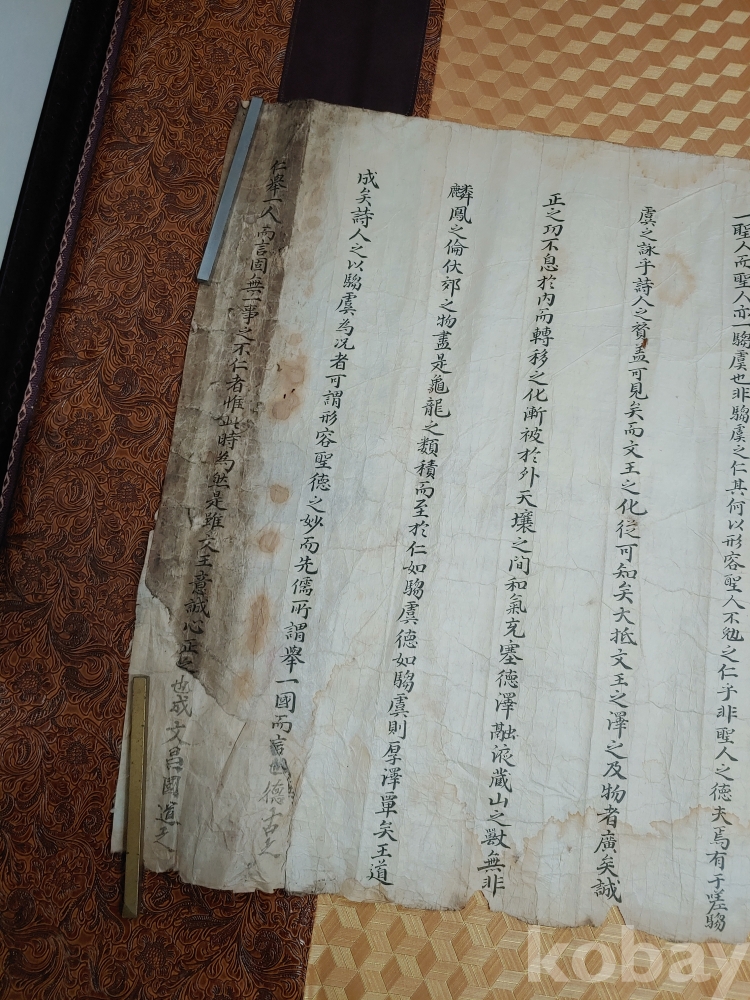 一聖人而聖人亦一騶虞也非騶虞之仁其何以形容聖人不勉之仁乎非聖人之德夫焉有于嗟騶
虞之詠乎詩人之賛盖可見矣而文王之化從可知矣大抵文王之澤之及物者廣矣誠
正之功不息於內而轉移之化漸被於外天壤之间和氣充塞德澤融液蔵山之獸無非
麟鳳之倫伏郊之物盡是龜龍之類積而至於仁如騶虞德如騶虞則厚澤覃矣王道
成矣詩人之以騶虞為况者可謂形容聖德之妙而先儒所謂舉一國而言
仁舉一人而言固無一事之不仁者惟此時為然是雖文王意誠心正 也 文 國道之
kobay